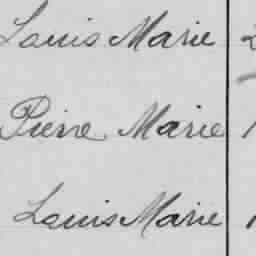 Louis Marie
Pierre Marie
Louis Marie